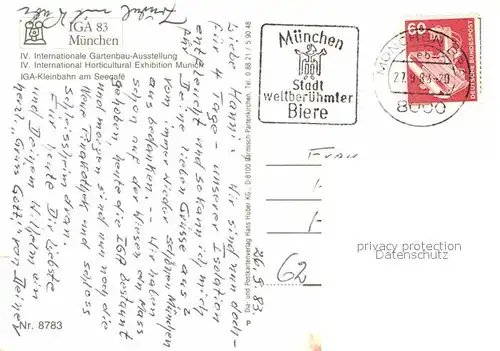 IGA 83
München
IV. Internationale Gartenbau-Ausstellung
IV. International Horticultural Exhibition Munich
IGA-Kleinbahn am Seegafé
26.9.83
Liebe Hanni! Wir sind nun doch
für 4 Tage - unserer Isolation
entfleucht und so kann ich mich
für Deine lieben Grüsse aus
vom immer wieder schönen München
aus bedanken. - Wir haben
schon auf der Wiesen ein Mass
gehoben, heute die IGA bestaunt
und morgen sind nun noch die
Neue Pinakothek und Schloss
Schleissheim dran.
Für heute Dir Liebste
und Deinem Wilhelm ein
herzl. „Grüss Gott" von Deiner
Nr. 8783
Dia- und Postkartenverlag Hans Huber KG · D 8100 Garmisch-Partenkirchen · Tel. 0 88 21 / 5 90 48
München
Stadt
weltberühmter
Biere
60
DEUTSCHE BUNDESPOST
MÜNCHEN
27.9.83-20
8000
Frau
62
privacy protection
Datenschutz